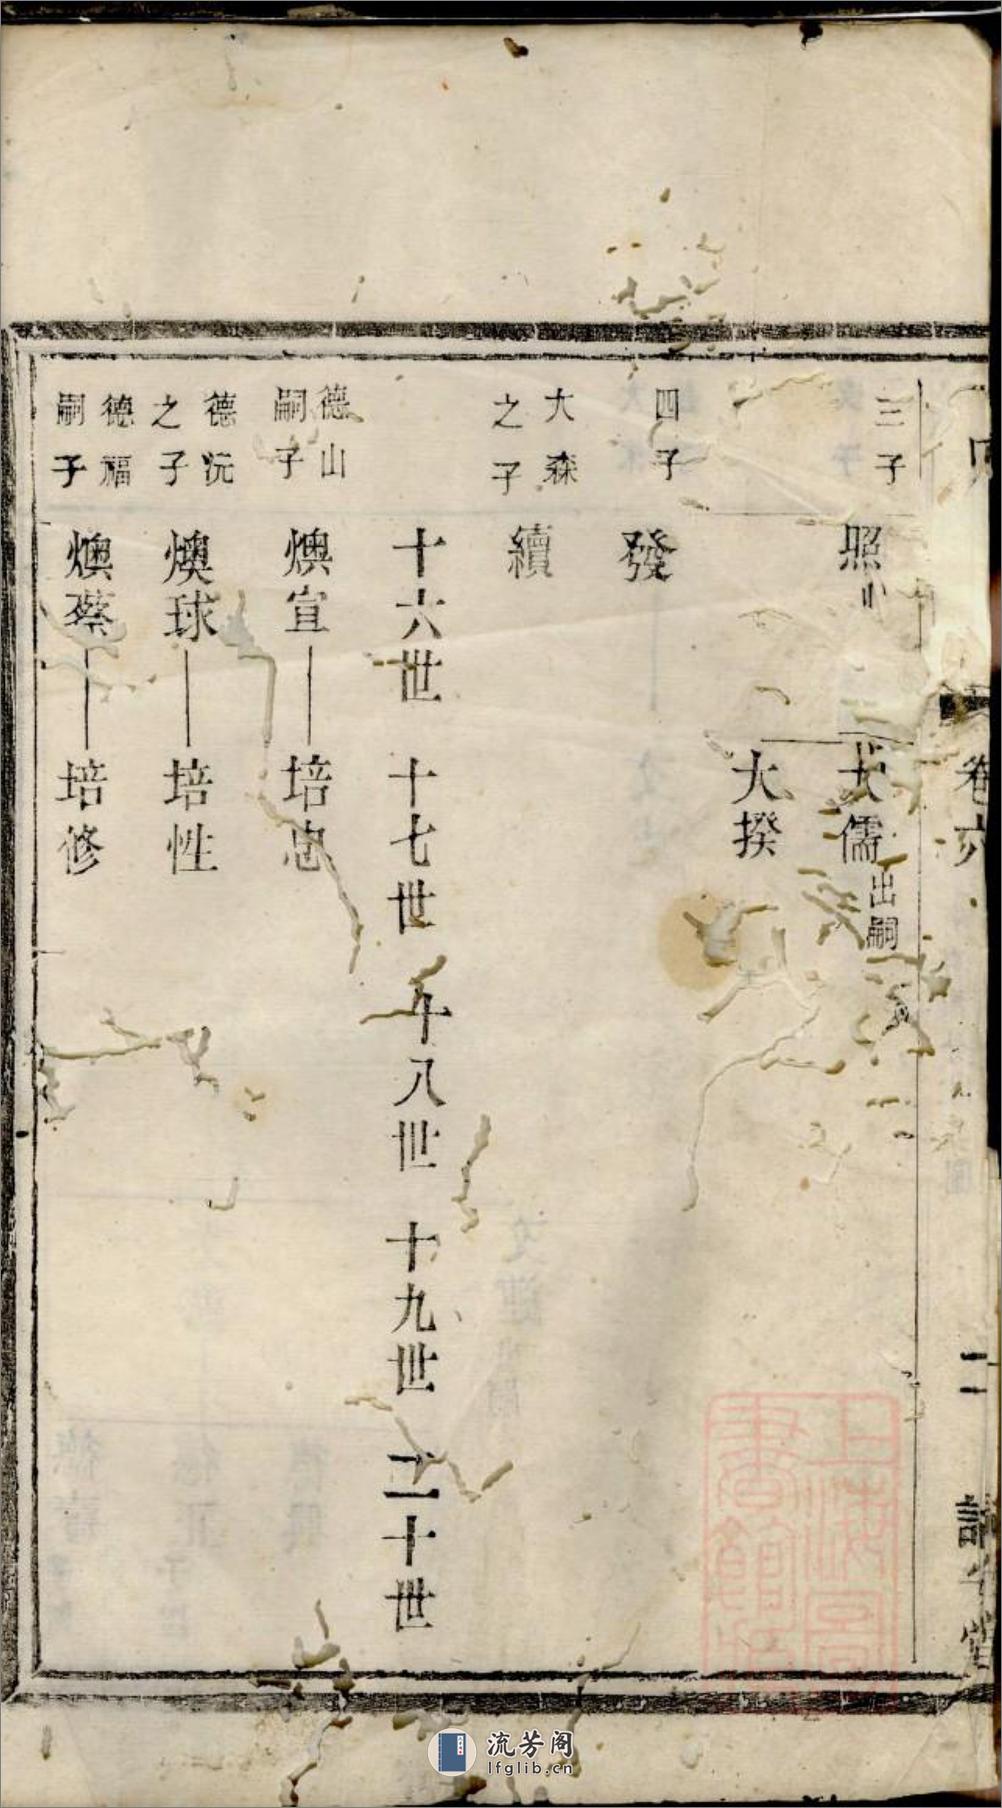 卷六
二
三子
照
大儒出嗣
大揆
四子
發
大森之子
續
十六世 十七世 十八世 十九世 二十世
德山嗣子
燠宣 培忠
德沅之子
燠球 培性
德福嗣子
燠蔡 培修
流芳阁
lfglib.cn